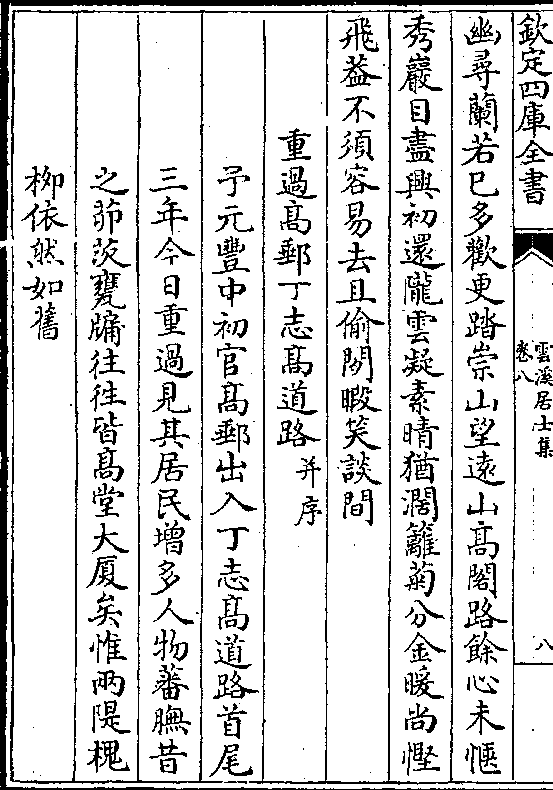 欽定四庫全書
雲溪居士集
卷八
八
幽尋蘭若已多歡更踏崇山望遠山髙閣路餘心未愜
秀巖目盡興初還隴雲凝素晴猶濶籬菊分金暖尚慳
飛葢不須容易去且偷閒暇笑談間
重過髙郵丁志髙道路并序
予元豐中初官髙郵出入丁志髙道路首尾
三年今日重過見其居民增多人物蕃膴昔
之茆茨甕牖往往皆髙堂大厦矣惟兩隄槐
柳依然如舊